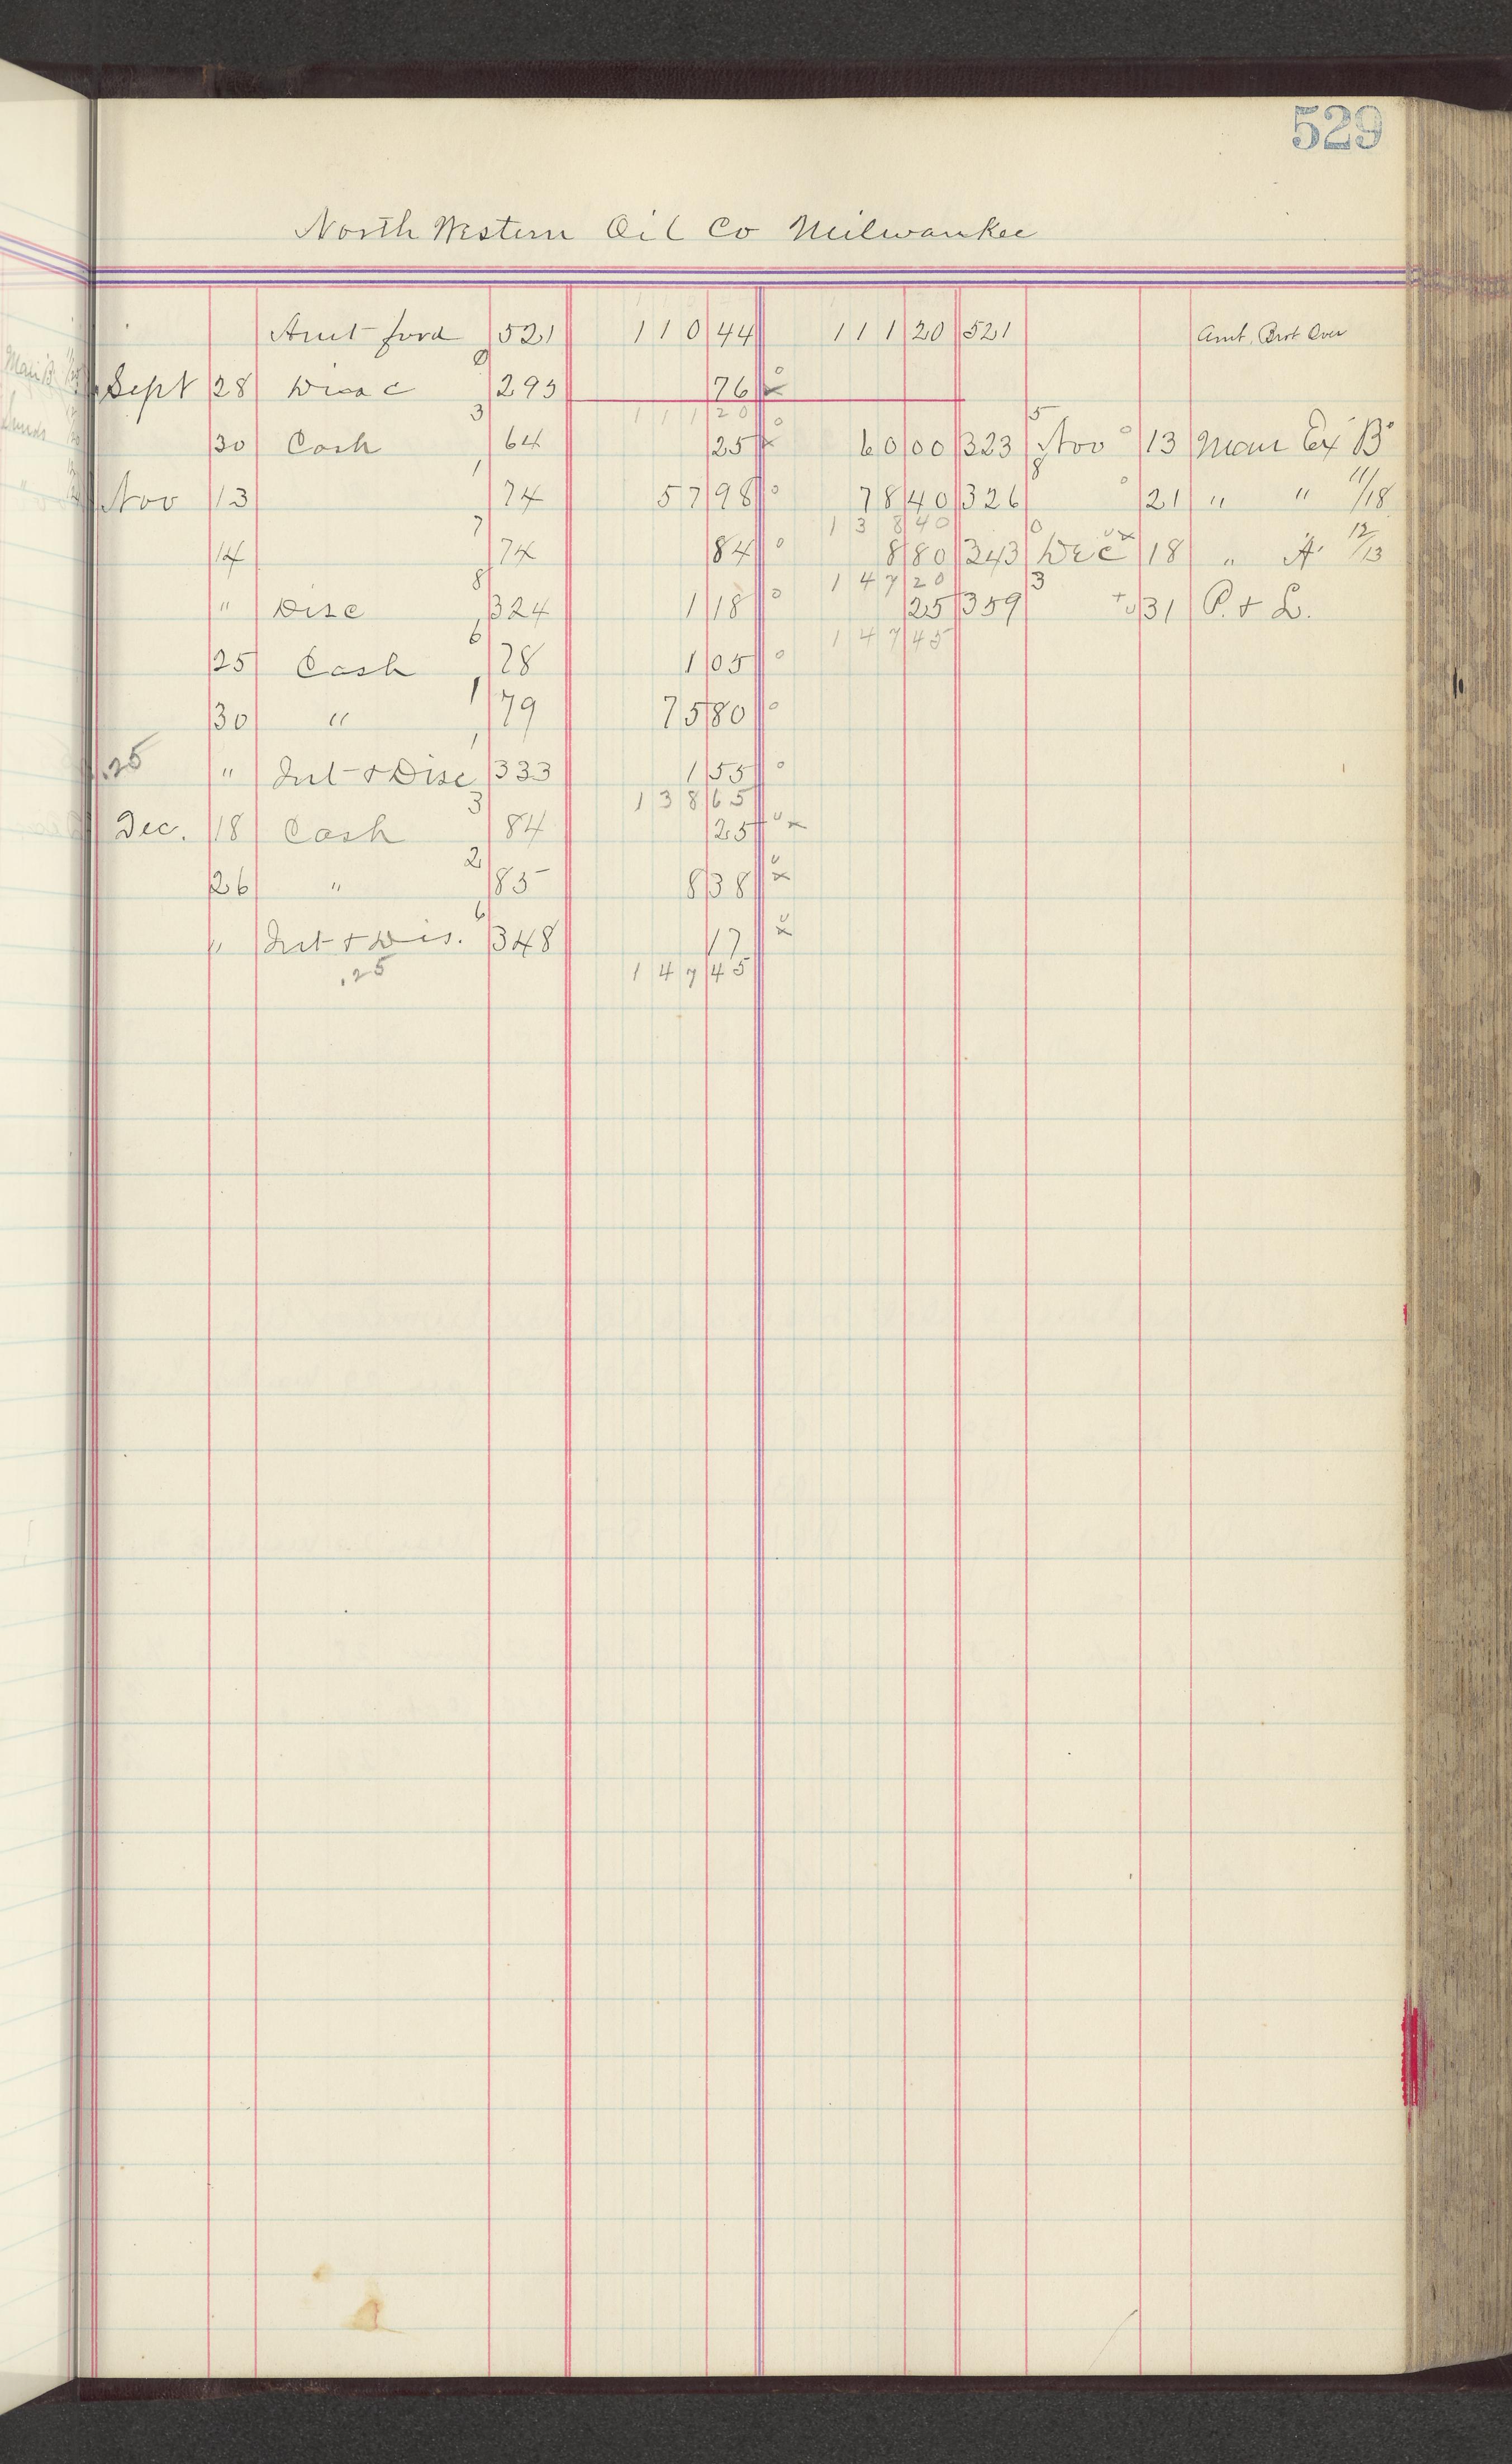 529
North Western Oil Co Milwaukee
Amt ford 521 110 44 111 20 521 Amt, Brot Over
Sept 28 Disc 0 295 76 ° x
111 20
30 Cash 3 64 25 ° x 60 00 323 5 Nov ° 13 Man Ex B°
Nov 13 1 74 57 98 ° 78 40 326 8 ° 21 " " 11/18
138 40
14 7 74 84 ° 8 80 343 0 Dec x 18 " A 12/13
147 20
" Disc 8 324 1 18 ° 25 359 3 + 31 P. & L.
147 45
25 Cash 6 78 1 05 °
30 " 1 79 75 80 °
.25 " Int & Disc 1 333 1 55 °
138 65
Dec. 18 Cash 3 84 25 x
26 " 2 85 8 38 x
" Int & Dis. 6 348 17 x
.25 147 45